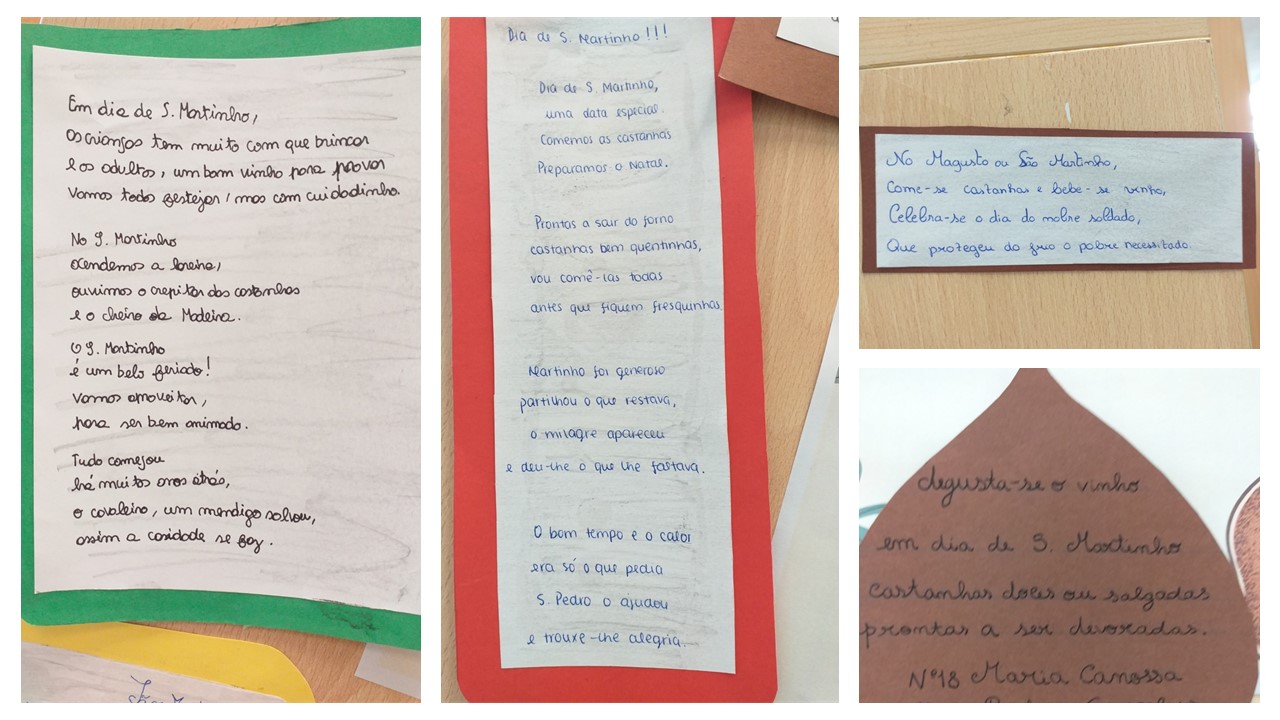 Em dia de S. Martinho,
as crianças tem muito com que brincar
e os adultos, um bom vinho para provar
Vamos todos festejar, mas com cuidadinho.
No S. Martinho
acendemos a lareira,
ouvimos o crepitar das castanhas
e o cheiro da Madeira.
O S. Martinho
é um belo feriado!
vamos aproveitar,
para ser bem animado.
Tudo começou
há muitos anos atrás,
o cavaleiro, um mendigo salvou,
assim a caridade se faz.
Dia de S. Martinho!!!
Dia de S. Martinho,
uma data especial.
Comemos as castanhas
Preparamos o Natal.
Prontas a sair do forno
castanhas bem quentinhas,
vou comê-las todas
antes que fiquem fresquinhas.
Martinho foi generoso
partilhou o que restava,
o milagre apareceu
e deu-lhe o que lhe faltava.
O bom tempo e o calor
era só o que pedia
S. Pedro o ajudou
e trouxe-lhe alegria.
No Magusto ou São Martinho,
Come-se castanhas e bebe-se vinho,
Celebra-se o dia do nobre soldado,
Que protegeu do frio o pobre necessitado.
degusta-se o vinho
em dia de S. Martinho
castanhas doces ou salgadas
prontas a ser devoradas.
Nº18 Maria Canossa